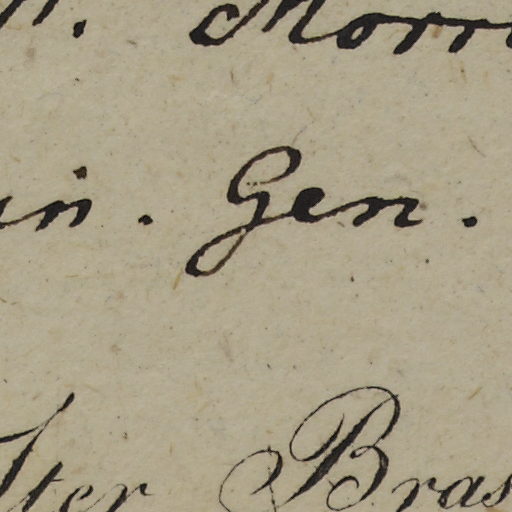 . Morr
in. Gen.
ter Bras